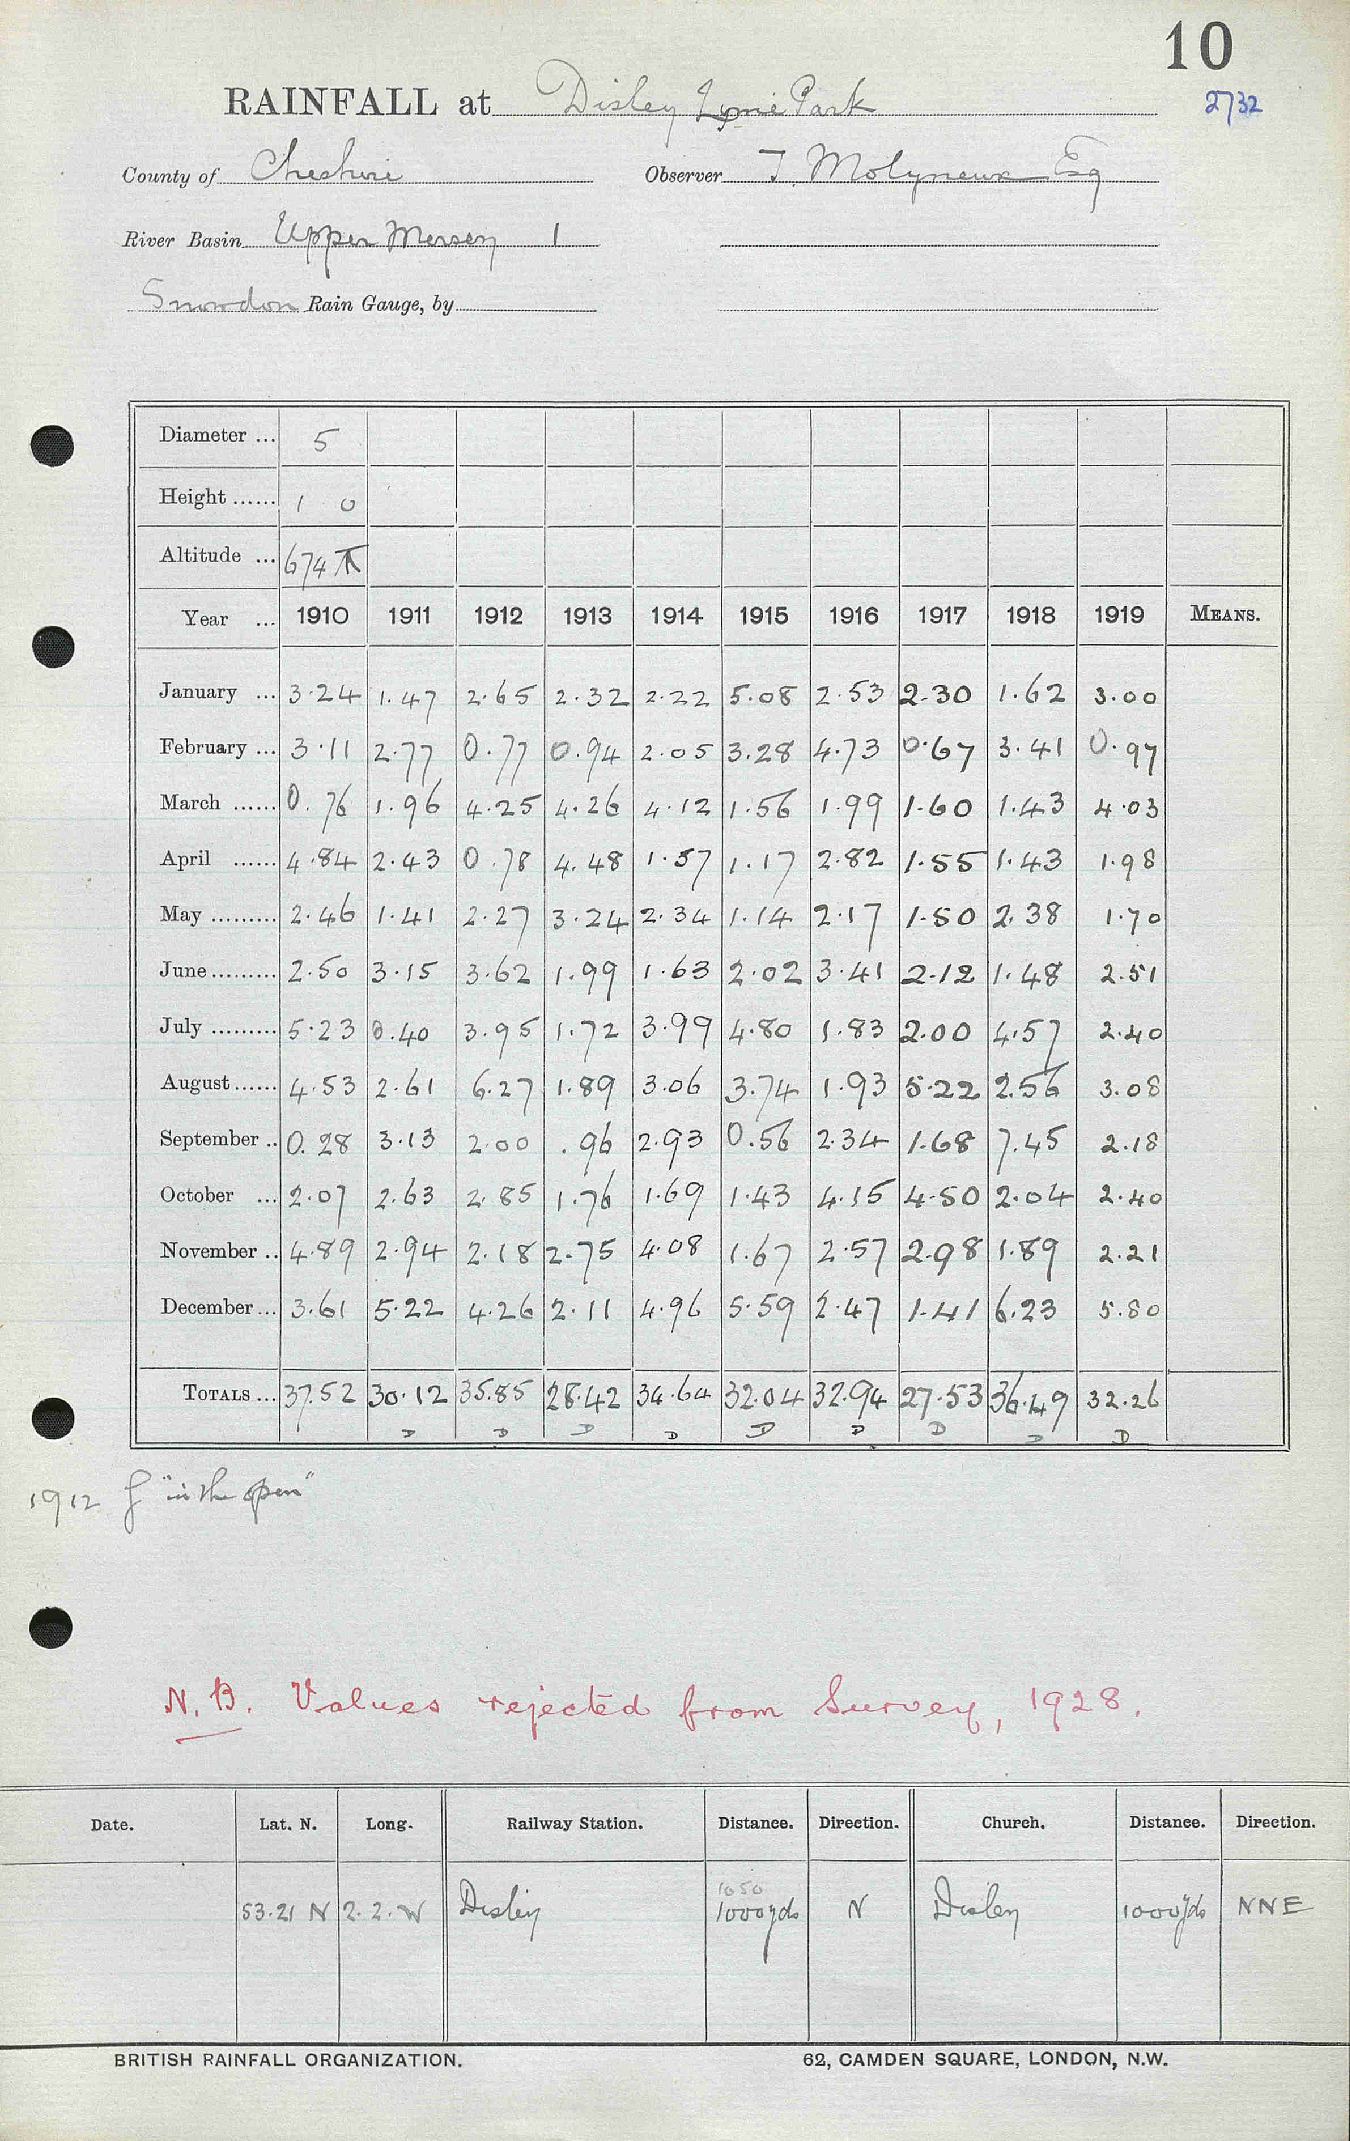 10
RAINFALL at Disley Lyme Park 2732
County of Cheshire Observer T. Molyneux Esq
River Basin Upper Mersey 1
Snowdon Rain Gauge, by
Diameter ... 5
Height ...... 1 0
Altitude ... 674
Year ... 1910 1911 1912 1913 1914 1915 1916 1917 1918 1919 MEANS.
January ... 3.24 1.47 2.65 2.32 2.22 5.08 2.53 2.30 1.62 3.00
February ... 3.11 2.77 0.77 0.94 2.05 3.28 4.73 0.67 3.41 0.97
March ...... 0.76 1.96 4.25 4.26 4.12 1.56 1.99 1.60 1.43 4.03
April ...... 4.84 2.43 0.78 4.48 1.57 1.17 2.82 1.55 1.43 1.98
May ......... 2.46 1.41 2.27 3.24 2.34 1.14 2.17 1.50 2.38 1.70
June ......... 2.50 3.15 3.62 1.99 1.63 2.02 3.41 2.12 1.48 2.51
July ......... 5.23 0.40 3.95 1.72 3.99 4.80 1.83 2.00 4.57 2.40
August ...... 4.53 2.61 6.27 1.89 3.06 3.74 1.93 5.22 2.56 3.08
September .. 0.28 3.13 2.00 .96 2.93 0.56 2.34 1.68 7.45 2.18
October ... 2.07 2.63 2.85 1.76 1.69 1.43 4.15 4.50 2.04 2.40
November .. 4.89 2.94 2.18 2.75 4.08 1.67 2.57 2.98 1.89 2.21
December ... 3.61 5.22 4.26 2.11 4.96 5.59 2.47 1.41 6.23 5.80
TOTALS ... 37.52 30.12 35.85 28.42 34.64 32.04 32.94 27.53 36.49 32.26
D D D D D D D D D
1912 "in the open"
N.B. Values rejected from Survey, 1928.
Date. Lat. N. Long. Railway Station. Distance. Direction. Church. Distance. Direction.
1050
53.21 N 2.2.W Disley 1000yds N Disley 1000yds NNE
BRITISH RAINFALL ORGANIZATION. 62, CAMDEN SQUARE, LONDON, N.W.